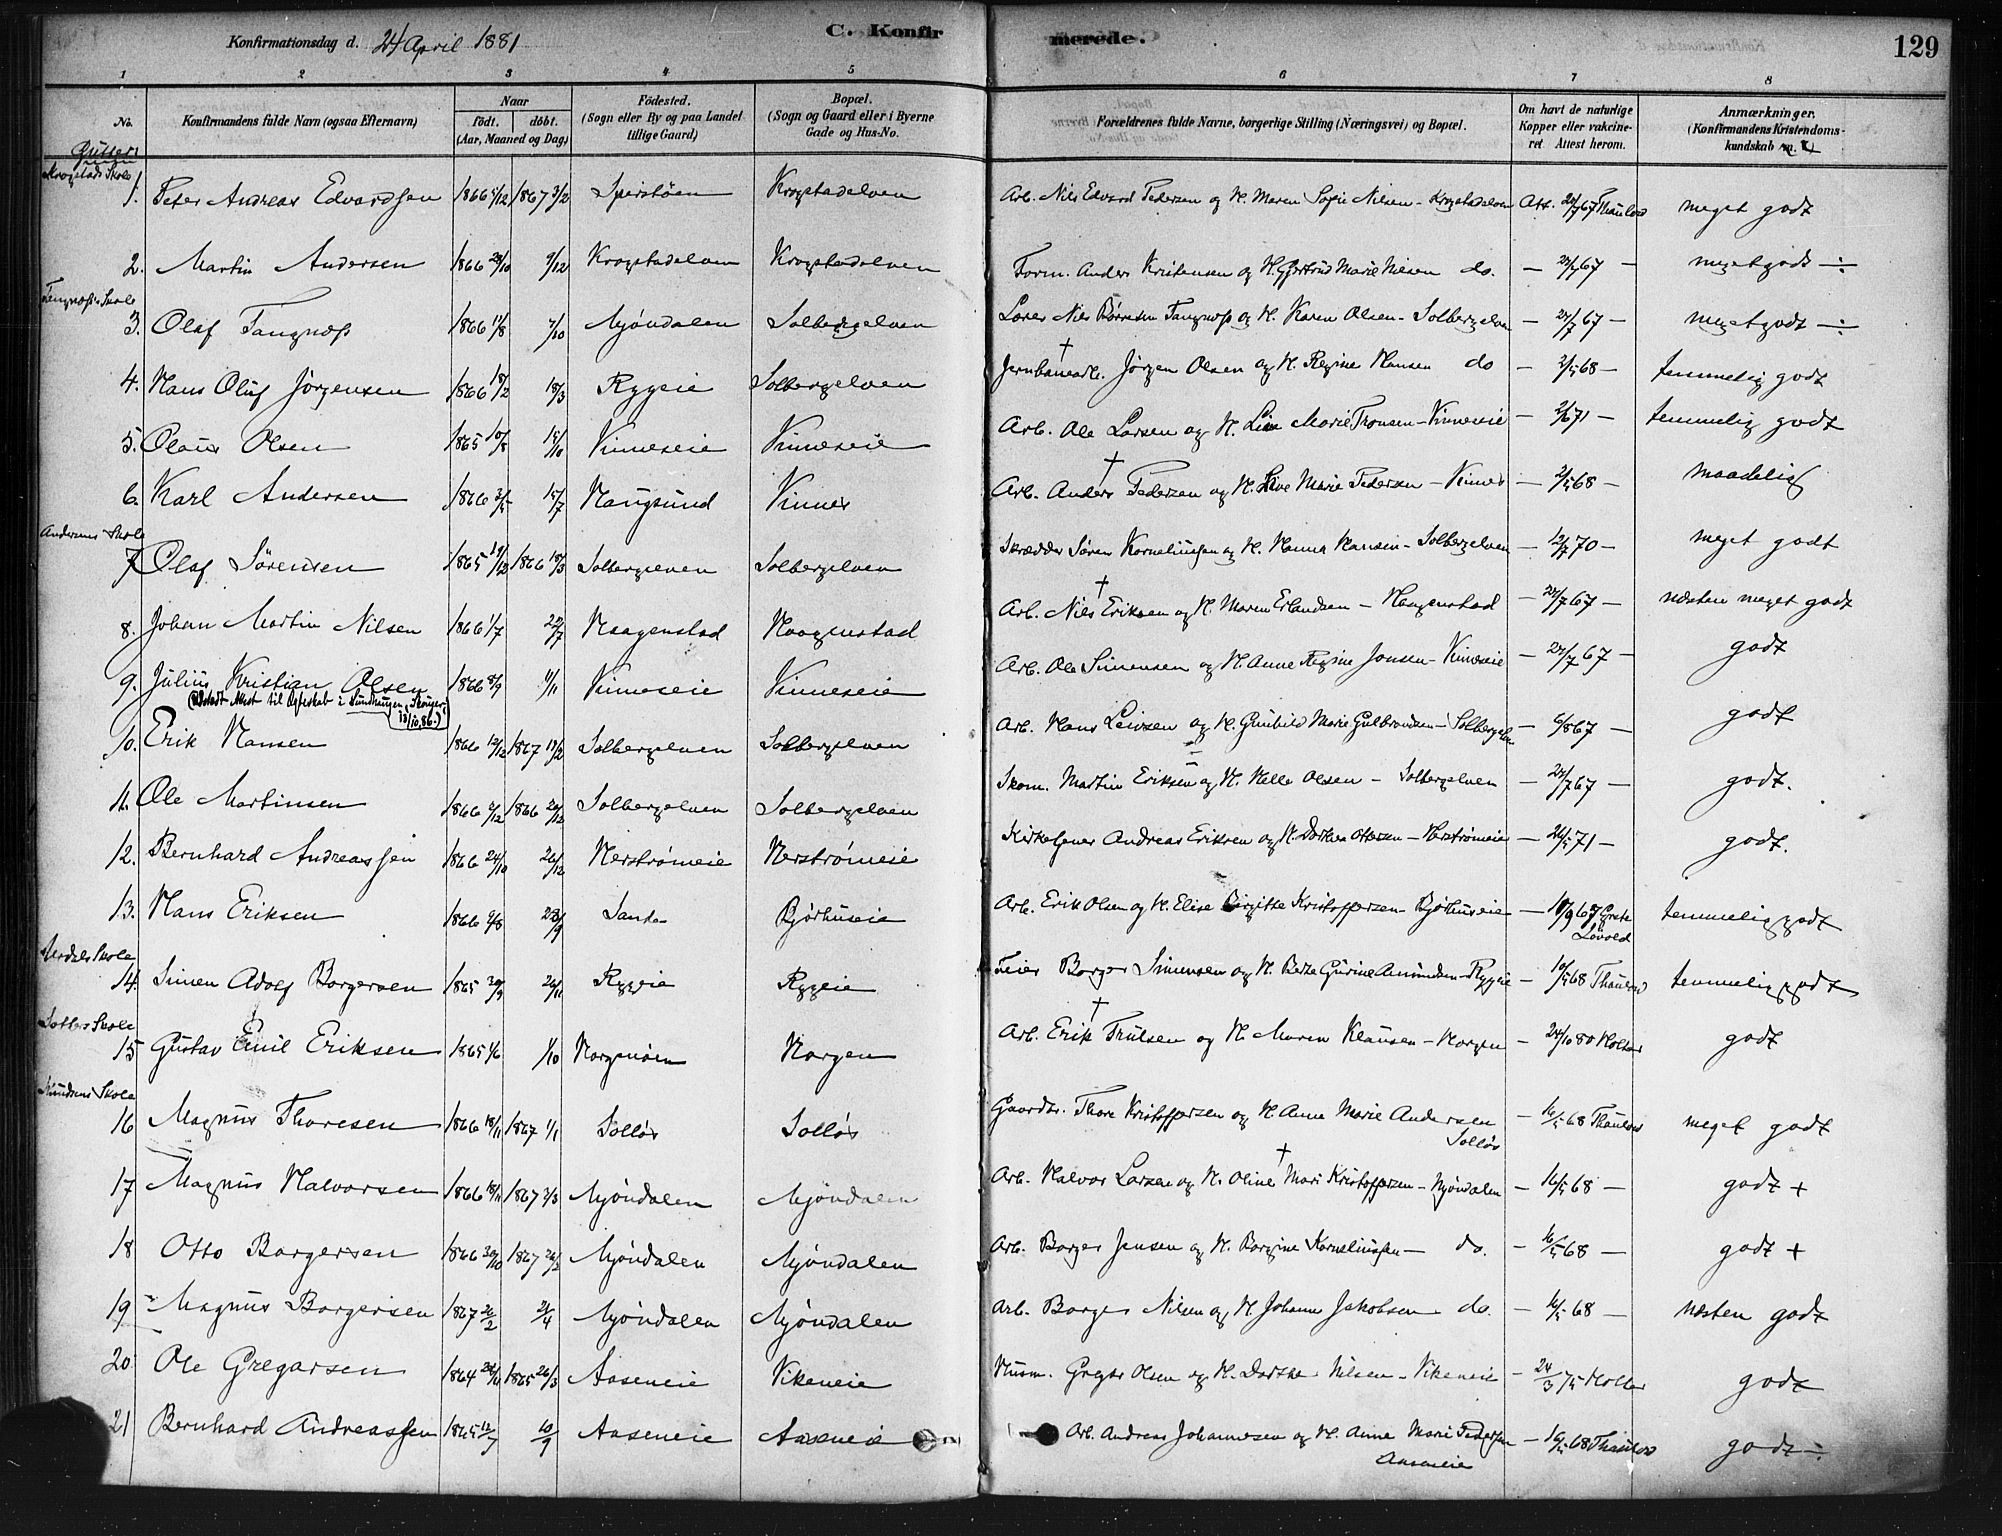 Konfirmationsdag d. 24 April 1881
C. Konfirmerede.
129
1 2 3 4 5 6 7 8
No.
Konfirmandens fulde Navn (ogsaa Efternavn)
Naar
født. døbt.
(Aar, Maaned og Dag)
Fødested.
(Sogn eller By og paa Landet tillige Gaard)
Bopæl.
(Sogn og Gaard eller i Byerne Gade og Hus-No.
Forældrenes fulde Navne, borgerlige Stilling (Næringsvei) og Bopæl.
Om havt de naturlige Kopper eller vakcineret Attest herom.
Anmærkninger.
(Konfirmandens Kristendomskundskab m.
Gutter
Krogstads Skole
1. Peter Andreas Edvardsen 1866 5/12 1867 3/2 Sperstøen Krogstadelven Arb. Nils Edvard Pedersen og H. Maren Sofie Nilsen - Krogstadelven Att. 24/7 67 Thaulow meget godt
2. Martin Andersen 1866 28/10 9/12 Krogstadelven Krogstadelven Form. Anders Kristensen og H. Gjertrud Marie Nilsen do. — 24/7 67 — meget godt ÷
3. Olaf Tangnæss 1866 17/8 7/10 Mjøndalen Solbergelven Lærer Nils Børresen Tangnæss og H. Karen Olsen - Solbergelven — 24/7 67 — meget godt ÷
4. Hans Oluf Jørgensen 1866 18/2 18/3 Ryggeie Solbergelven Jernbanearb. † Jørgen Olsen og H. Regine Hansen do — 2/5 68 — temmelig godt
5. Olaus Olsen 1865 10/8 15/10 Vinneseie Vinneseie Arb. Ole Larsen og H. Lise Marie Tronsen - Vinneseie — 2/6 71 — temmelig godt
6. Karl Andersen 1866 3/5 15/7 Haugsund Vinnes Arb. Anders † Pedersen og H. Live Marie Pedersen - Vinnes — 2/5 68 — maadelig
Andersens Skole
7 Olaf Sørensen 1865 19/12 1866 18/3 Solbergelven Solbergelven Skrædder Søren Korneliussen og H. Hanna Hansen - Solbergelven — 12/7 70 — meget godt
8. Johan Martin Nilsen 1866 1/7 22/7 Haagenstad Haagenstad Arb. Nils † Eriksen og H. Maren Erlandsen - Haagenstad — 24/7 67 — næsten meget godt
9. Julius Kristian Olsen 1866 8/9 11/11 Vinneseie Vinneseie Arb. Ole Simensen og H. Anne Regine Jonsen - Vinneseie — 24/7 67 — godt
10. Erik Hansen 1866 12/12 1867 17/2 Solbergelven Solbergelven Arb. Hans Lewsen og H. Gunhild Marie Gulbrandsen - Solbergelven — 6/8 67 — godt
11. Ole Martinsen 1866 2/12 1866 26/12 Solbergelven Solbergelven Skom. Martin Eriksen og H. Helle Olsen - Solbergelven — 24/7 67 — godt.
12. Bernhard Andreassen 1866 24/10 26/12 Nerstrømeie Nerstrømeie Kirketjener Andreas Eriksen og H. Dorthea Ottersen - Nerstrømeie — 26/5 71 — godt.
13. Hans Eriksen 1866 9/8 23/9 Sande Bjørhuseie Arb. Erik Olsen og H. Elise Birgitte Kristoffersen - Bjørhuseie — 18/9 67 Grete Løvold temmelig godt
14. Simen Adolf Borgersen 1865 30/9 26/11 Ryggeie Ryggeie Feier Borger Simensen og H. Berte Gurine Amundsen - Ryggeie — 16/5 68 Thaulow temmelig godt
15 Gustav Emil Eriksen 1865 1/6 1/10 Horgenøen Horgen Arb. Erik † Trulsen og H. Maren Klausen - Horgen — 24/10 80 Holter godt
Knudsens Skole
16 Magnus Thoresen 1866 18/11 1867 1/1 Solløs Solløs Gaardbr. Thore Kristoffersen og H. Anne Marie Andersen Solløs — 16/5 68 Thaulow meget godt
17 Magnus Halvorsen 1866 18/11 1867 3/3 Mjøndalen Mjøndalen Arb. Halvor Larsen og H. Oline † Mari Kristoffersen - Mjøndalen — 16/5 68 — godt +
18 Otto Borgersen 1866 30/10 1867 26/2 Mjøndalen Mjøndalen Arb. Borger Jensen og H. Borgine Korneliussen — do. — 16/5 68 — godt +
19 Magnus Borgersen 1867 26/2 21/4 Mjøndalen Mjøndalen Arb. Borger Nilsen og H. Johanne Jakobsen do. — 16/5 68 — næsten godt
20 Ole Gregarsen 1864 24/11 1865 26/3 Aaseneie Vikeneie Husm. Gregar Olsen og H. Dorthe Nilsen - Vikeneie — 24/3 75 Holter godt
21 Bernhard Andreassen 1865 12/7 10/9 Aaseneie Aaseneie Arb. Andreas Johannesen og H. Anne Marie Pedersen Aaseneie — 16/5 68 Thaulow godt ÷